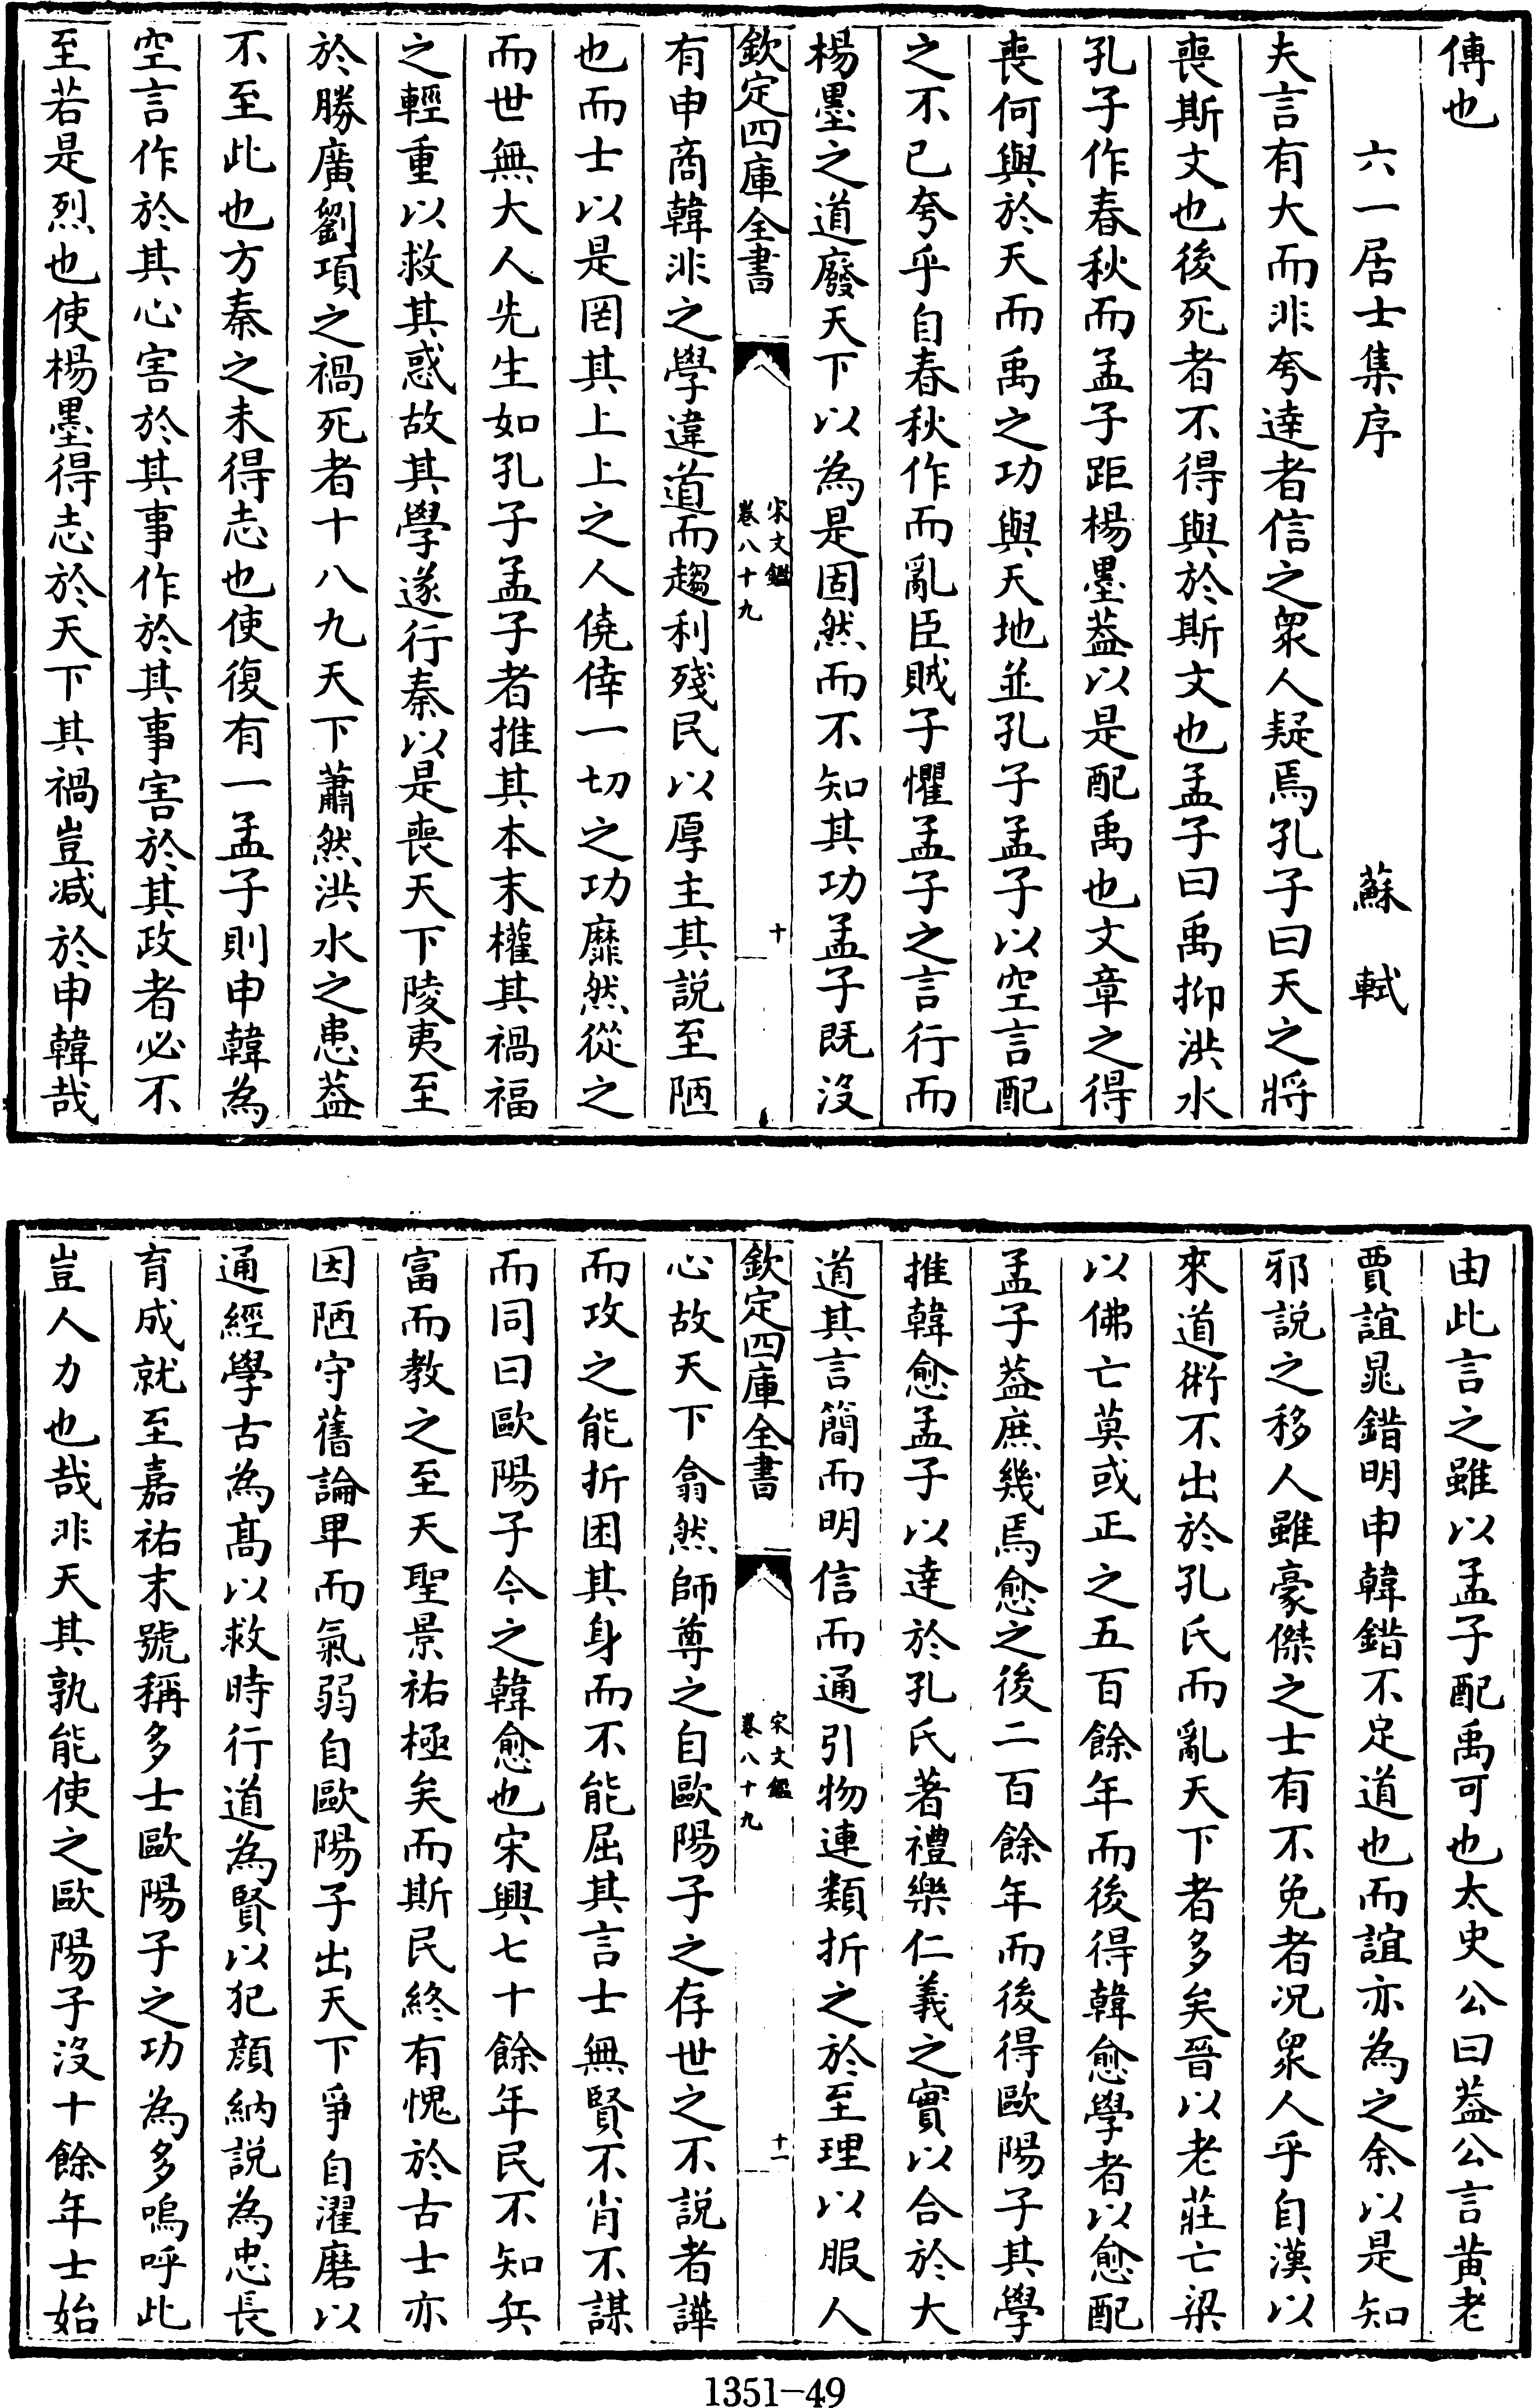 傳也
六一居士集序　蘇軾
夫言有大而非夸逹者信之衆人疑焉孔子曰天之將
喪斯文也後死者不得與於斯文也孟子曰禹抑洪水
孔子作春秋而孟子距楊墨葢以是配禹也文章之得
喪何與於天而禹之功與天地並孔子孟子以空言配
之不已夸乎自春秋作而亂臣賊子懼孟子之言行而
楊墨之道廢天下以為是固然而不知其功孟子既沒
欽定四庫全書
宋文鑑
卷八十九
十
有申商韓非之學違道而趨利殘民以厚主其說至陋
也而士以是罔其上上之人僥倖一切之功靡然從之
而世無大人先生如孔子孟子者推其本末權其禍福
之輕重以救其惑故其學遂行秦以是喪天下陵夷至
於勝廣劉項之禍死者十八九天下蕭然洪水之患葢
不至此也方秦之未得志也使復有一孟子則申韓為
空言作於其心害於其事作於其事害於其政者必不
至若是烈也使楊墨得志於天下其禍豈减於申韓哉
由此言之雖以孟子配禹可也太史公曰葢公言黄老
賈誼晁錯明申韓錯不足道也而誼亦為之余以是知
邪說之移人雖豪傑之士有不免者况衆人乎自漢以
來道術不出於孔氏而亂天下者多矣晉以老莊亡梁
以佛亡莫或正之五百餘年而後得韓愈學者以愈配
孟子葢庶幾焉愈之後二百餘年而後得歐陽子其學
推韓愈孟子以逹於孔氏著禮樂仁義之實以合於大
道其言簡而明信而通引物連類折之於至理以服人
欽定四庫全書
宋文鑑
卷八十九
十一
心故天下翕然師尊之自歐陽子之存世之不說者譁
而攻之能折困其身而不能屈其言士無賢不肖不謀
而同曰歐陽子今之韓愈也宋興七十餘年民不知兵
富而教之至天聖景祐極矣而斯民終有愧於古士亦
因陋守舊論卑而氣弱自歐陽子出天下爭自濯磨以
通經學古為髙以救時行道為賢以犯顔納說為忠長
育成就至嘉祐末號稱多士歐陽子之功為多嗚呼此
豈人力也哉非天其孰能使之歐陽子沒十餘年士始
1351-49